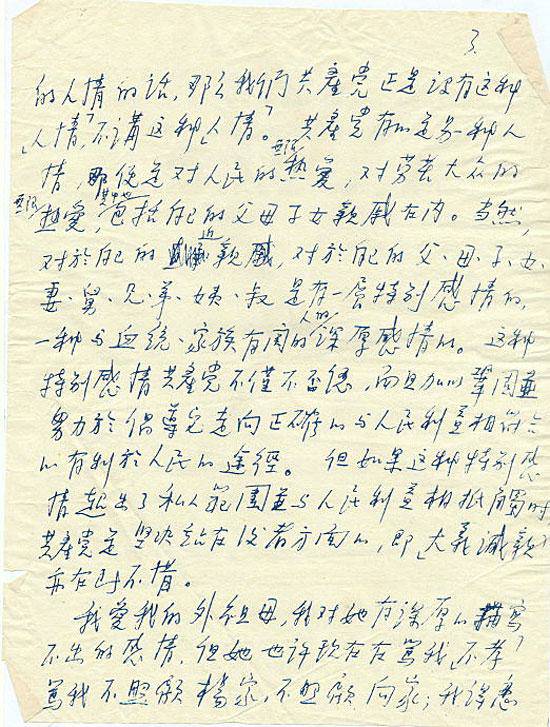 3.
的人情的话,那么我们共產党正是没有这种
「人情」,不講这种「人情」。共產党有的是另一种人
情,那便是对人民的无限热爱,对劳苦大众的
无限热愛,其中也包括自己的父母子女親戚在内。当然,
对於自己的近親戚,对於自己的父、母、子、女、
妻、舅、兄、弟、姨、叔是有一層特别感情的,
一种与血统、家族有関的人的深厚感情的。这种
特别感情共產党不僅不否認,而且加以鞏固並
努力於倡導它走向正確的与人民利益相符合
的有利於人民的途徑。但如果这种特别感
情超出了私人範圍並与人民利益相抵觸时
共產党是坚决站在後者方面的,即「大義滅親」
亦在所不惜。
我愛我的外祖母,我对她有深厚的描寫
不出的感情,但她也许现在在罵我「不孝」
罵我不照顧楊家,不照顧向家;我得忍